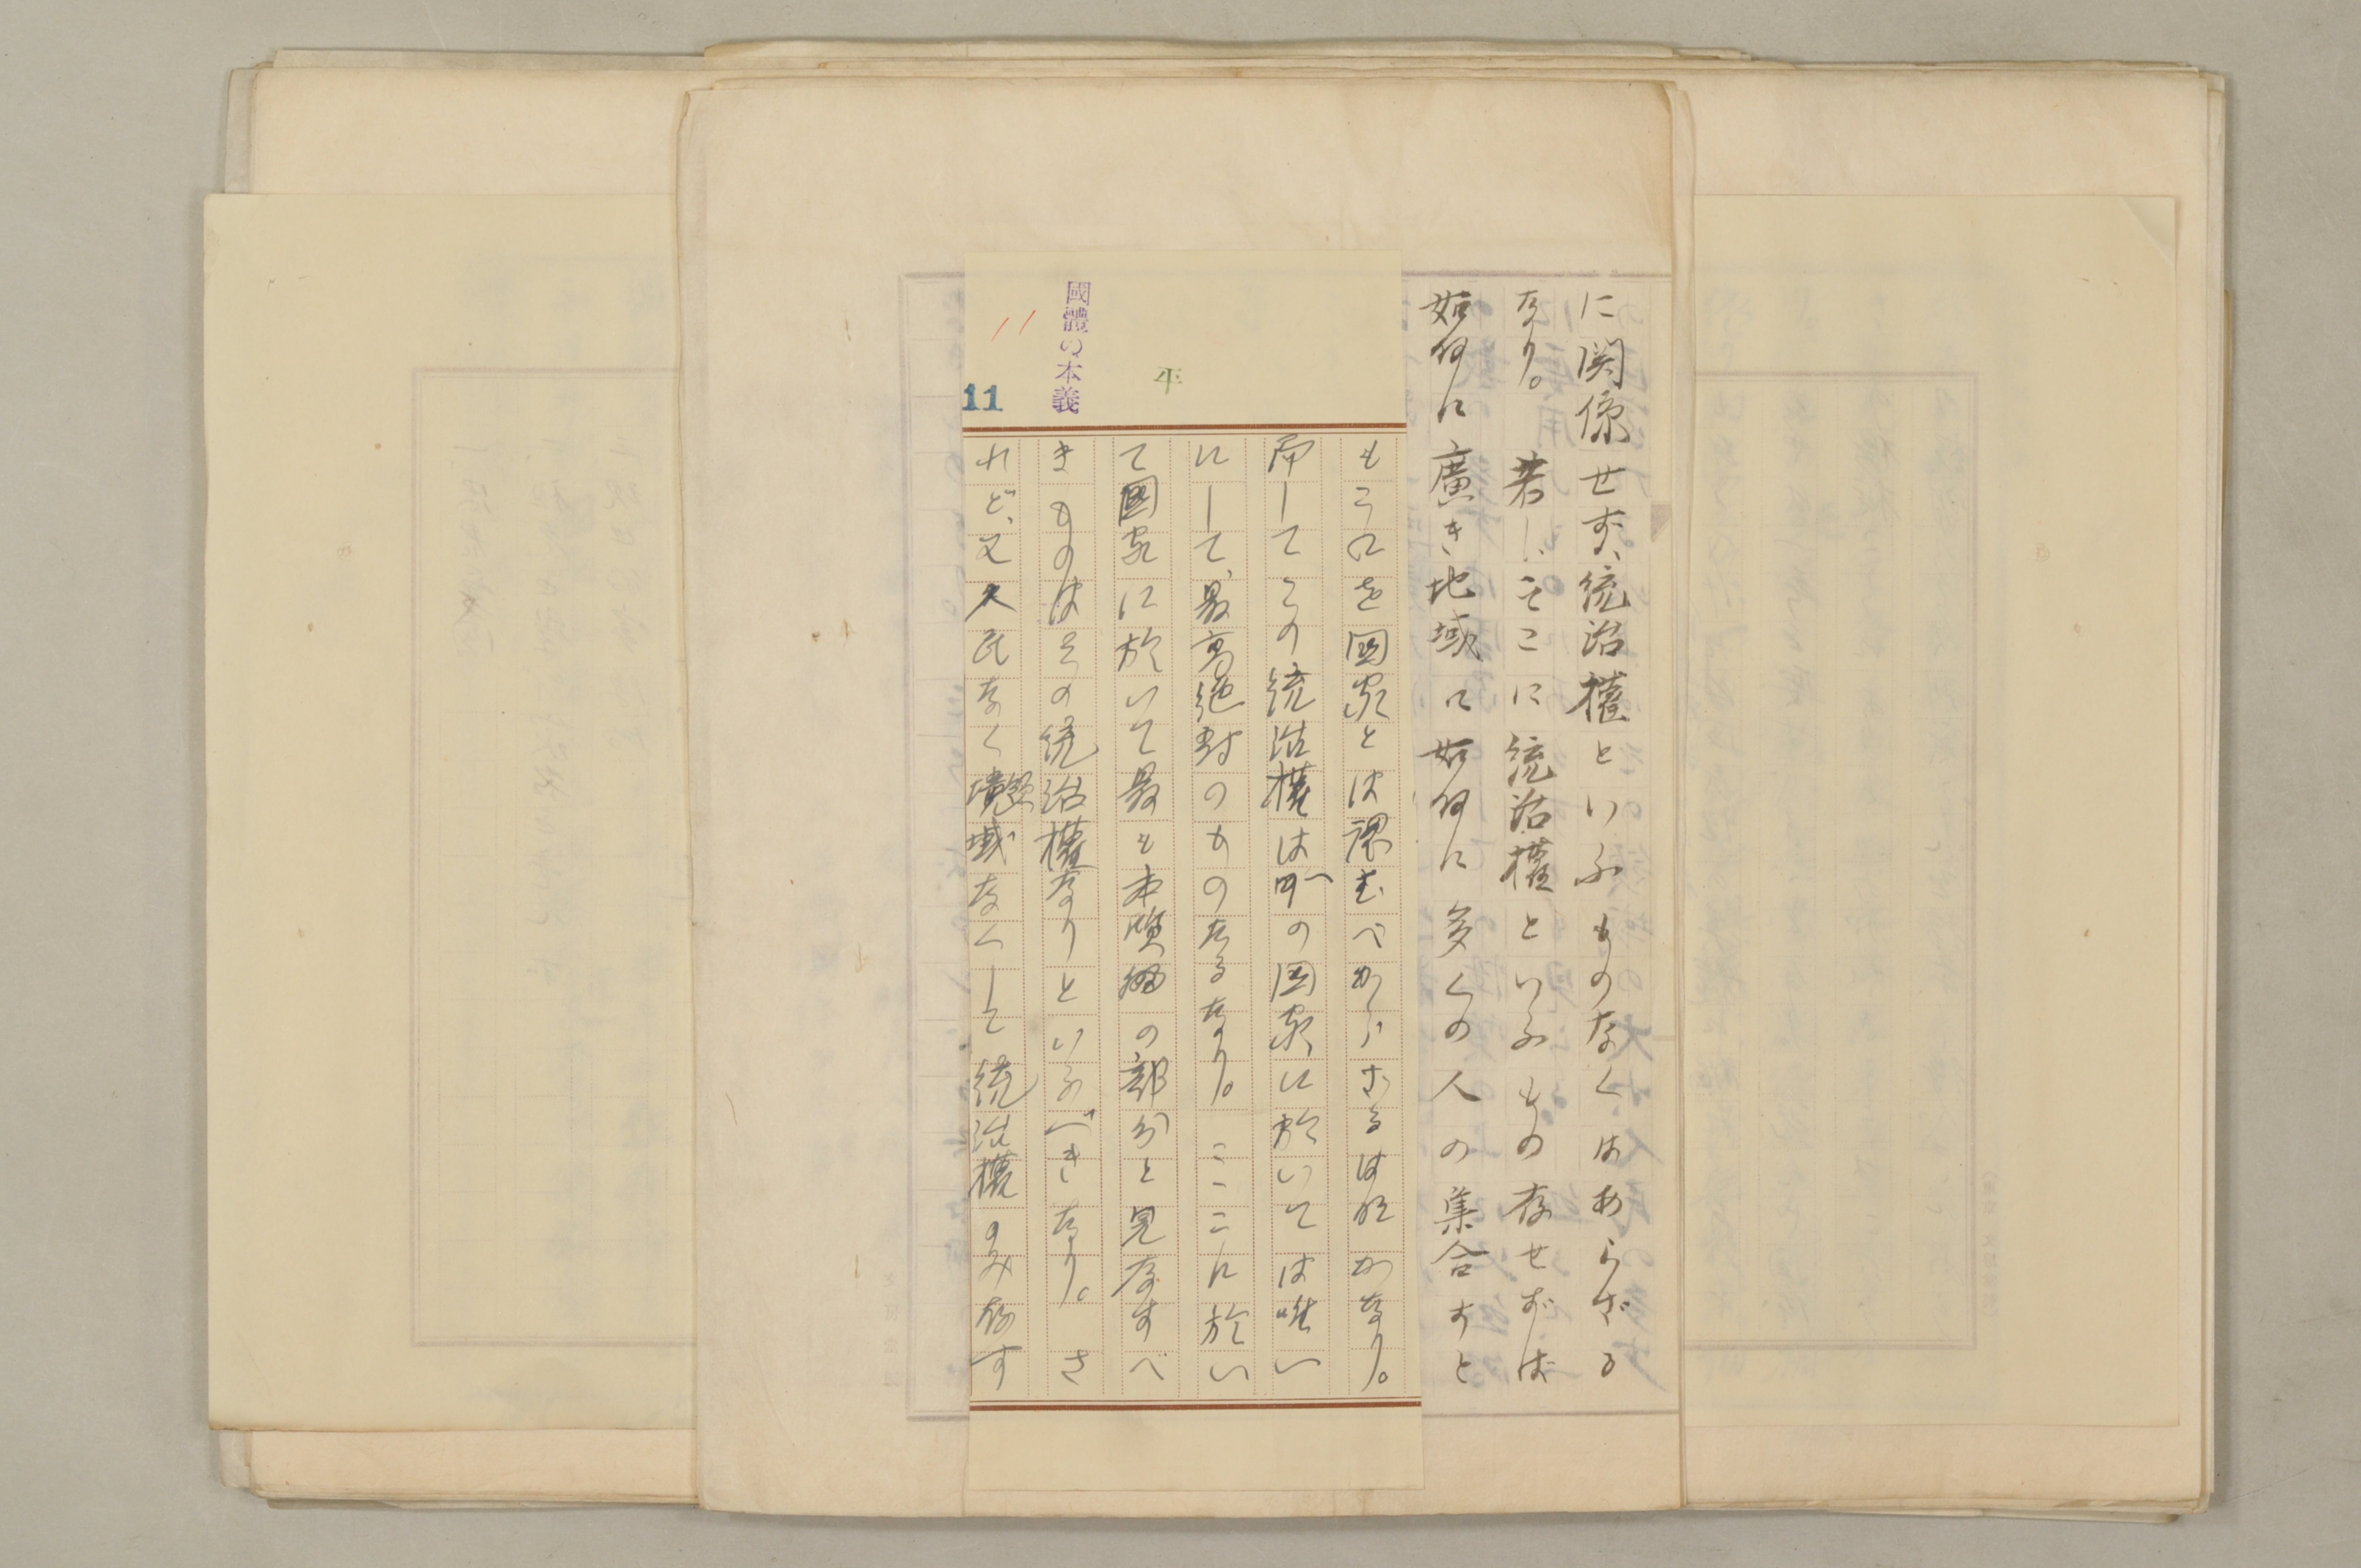 に関係せず、統治權といふものなくはあらざる
なり。若し、そこに統治權といふもの存せずば
如何に廣き地域に如何に多くの人の集合すと
國體の本義
平
11
11
もこれを國家とは認むべからざるは明かなり。
而してこの統治權はの國家に於いては唯一
にして、最高絶對のものなるなり。ここに於い
て國家に於いて最も本質的の部分と見なすべ
きものはその統治權なりといふべきなり。さ
れど、又人民なく域なくして統治權のみ存す